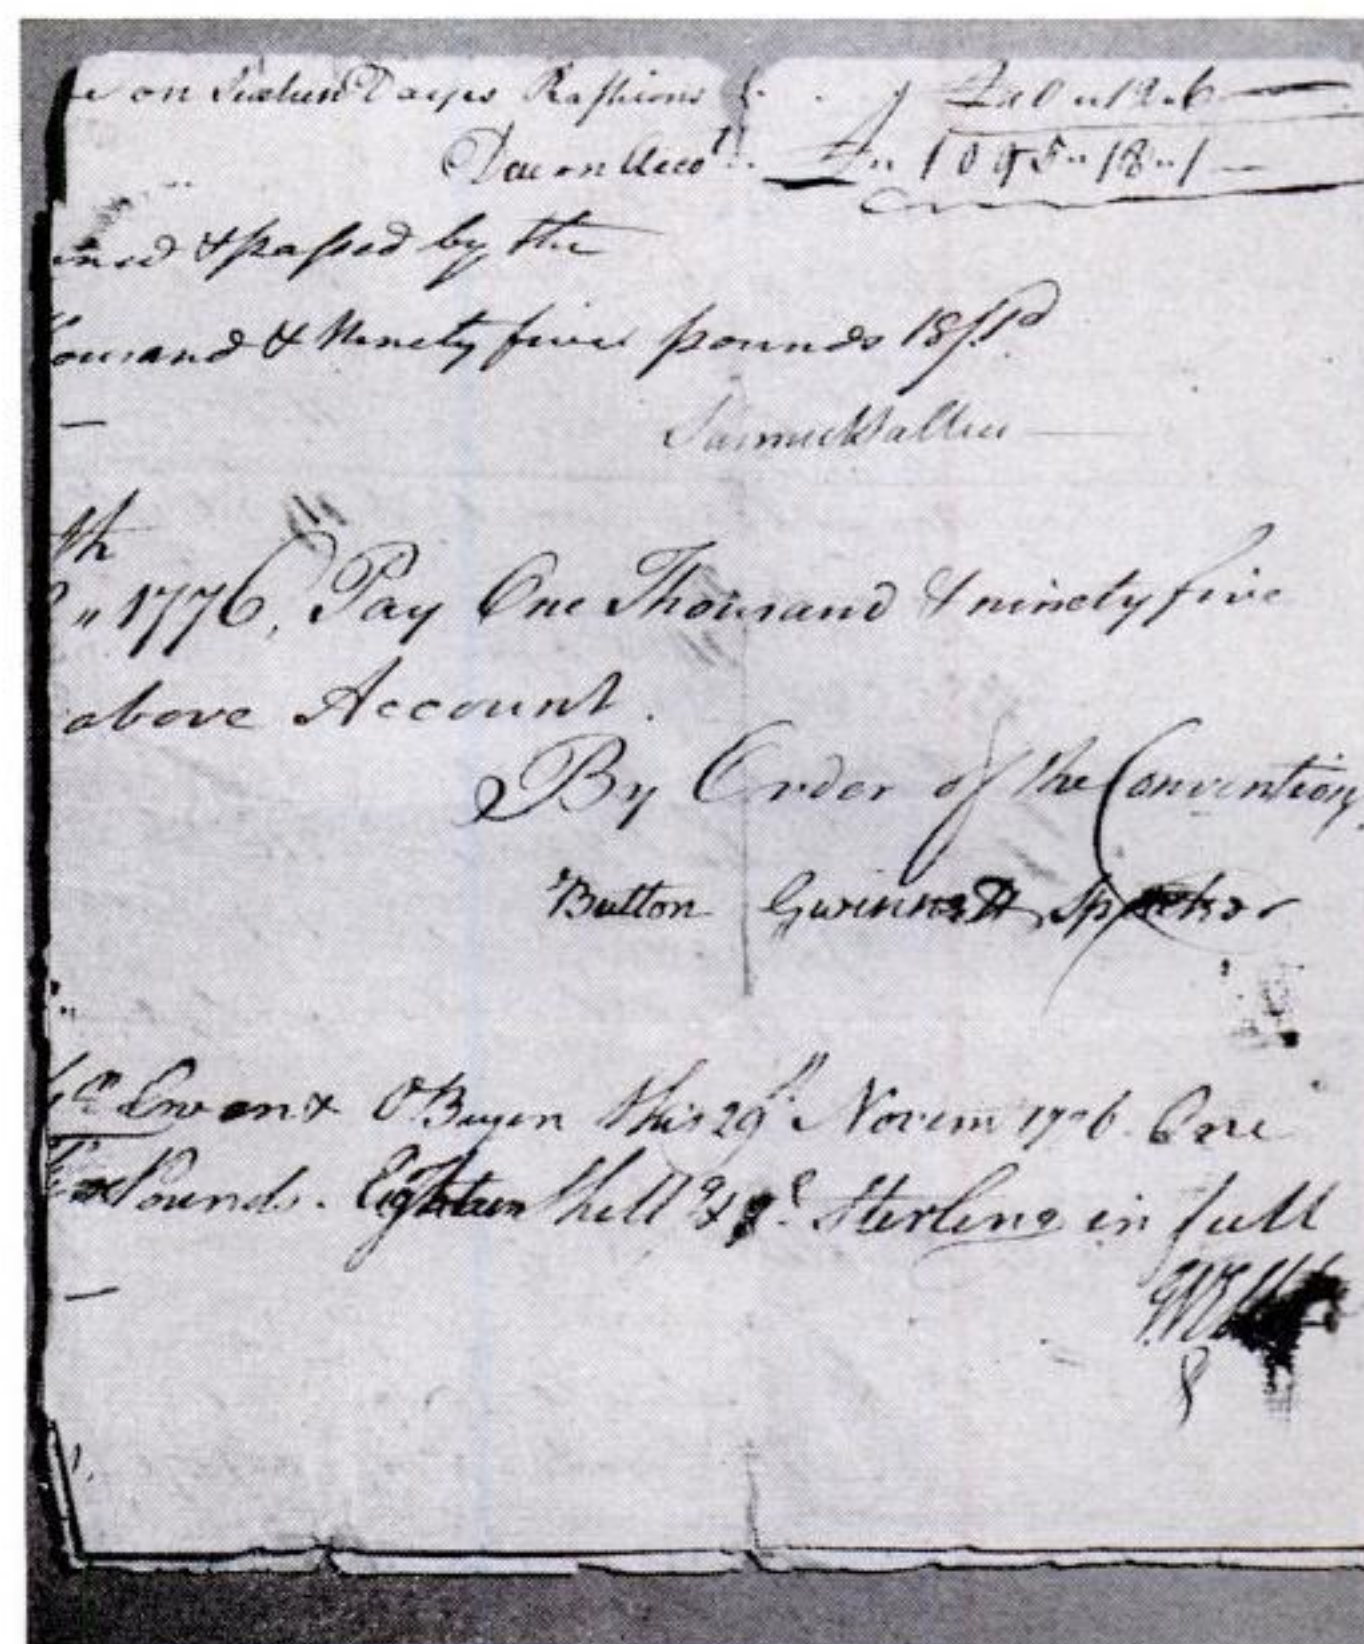 on Sixteen Days Rashions
Due on Acco.t £ 1095 " 18 " 1
ined & passed by the
ousand & Ninety five pounds 18/1d
Samuel
th
" 1776, Pay One Thousand & ninety five
above Account.
By Order of the Convention,
Button Gwinnett Speaker
Ewen & O'Bryen this 29th Novem 1776 One
Pounds. Eighteen Shell.gs & Sterling in full